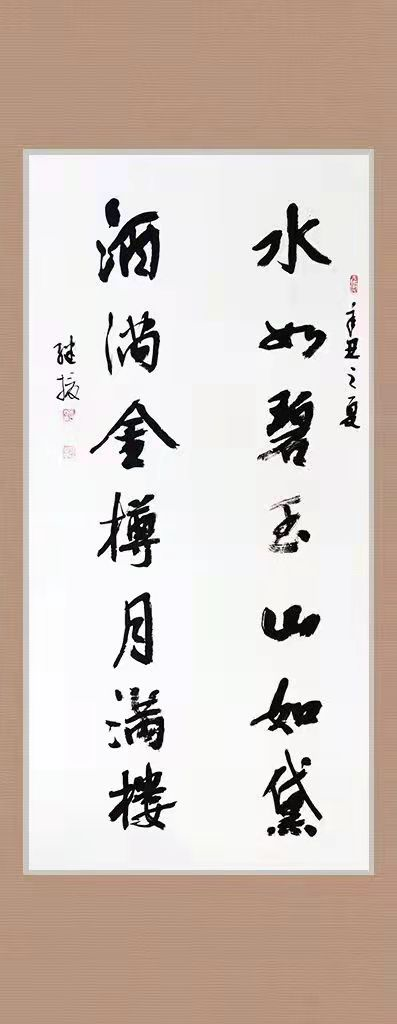 辛丑之夏
水如碧玉山如黛
酒满金樽月满楼
继振